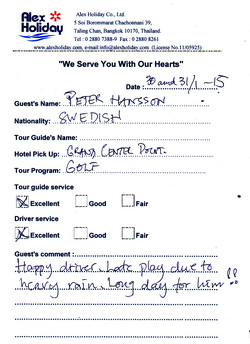 Alex Holiday
Alex Holiday Co., Ltd.
5 Soi Borommarat Chachonnani 39,
Taling Chan, Bangkok 10170, Thailand.
Tel : 0 2880 7388-9 Fax : 0 2880 8261
www.alexholiday.com, e-mail:info@alexholiday.com (License No.11/05925)
"We Serve You With Our Hearts"
Date : 30 and 31/1 -15
Guest's Name: PETER HANSSON
Nationality: SWEDISH
Tour Guide's Name:
Hotel Pick Up: GRAND CENTER POINT.
Tour Program: GOLF
Tour guide service
Excellent Good Fair
Driver service
Excellent Good Fair
Guest's comment :
Happy driver. Late play due to
heavy rain. Long day for him !!